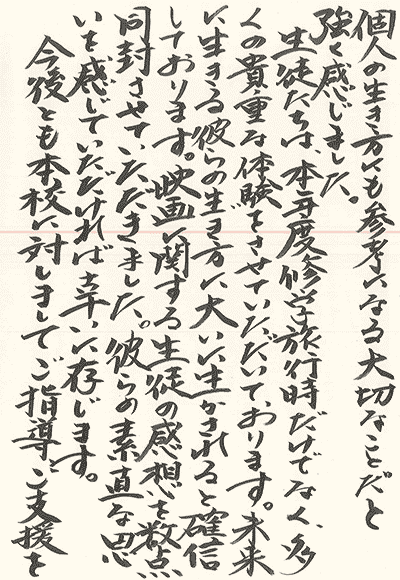 個人の生き方にも参考になる大切なことだと
強く感じました。
生徒たちは、本年度修学旅行時だけでなく、多
くの貴重な体験をさせていただいております。未来
に生きる彼らの生き方に大いに生かされると確信
しております。映画に関する生徒の感想を数点
同封させていただきました。彼らの素直な思
いを感じていただければ幸いに存じます。
今後とも本校に対しましてご指導ご支援を